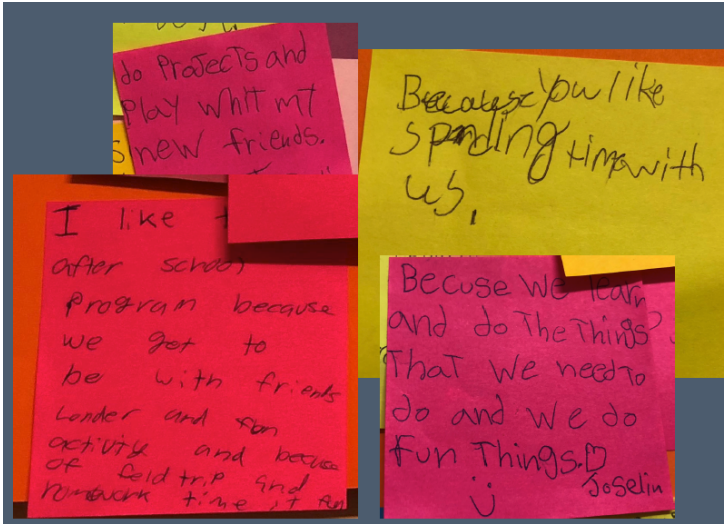 do ProJecTs and
Play whIT mT
new friends.
Because you like
spending time with
us.
I like t
after school
program because
we get to
be with friends
Londer and fun
activity and because
of feld trip and
homework time it fun
Becuse we learn
and do The Things
ThaT we need To
do and we do
fun Things.
Joselin